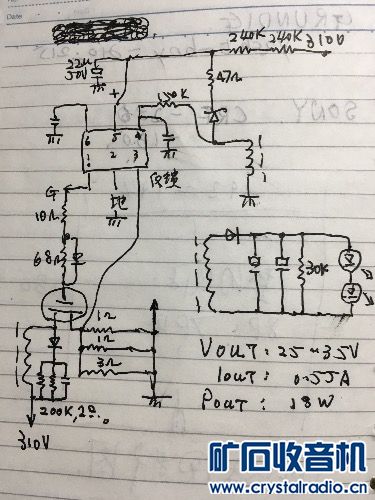 GRUNDIG
Date
240K 240K 310V
22u
50V
+
47Ω
6 5 4
1 2 3
反馈
G
地
10Ω
68Ω
1Ω
1Ω
3Ω
200K,2Ω。
310V
30K
VOUT: 25~35V
IOUT: 0.55A
POUT: 18W
矿石收音机
www.crystalradio.cn